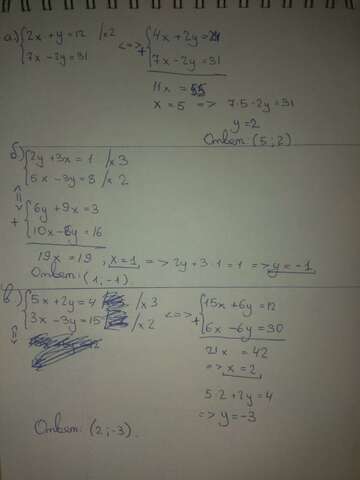 а) { 2x + y = 12 /x2 <=> { 4x + 2y = 24
7x - 2y = 31 + 7x - 2y = 31
11x = 55
x = 5 => 7·5-2y = 31
y = 2
Ответ: (5; 2)
б) { 2y + 3x = 1 /x3
5x - 3y = 8 /x2
<=>
+ { 6y + 9x = 3
10x - 6y = 16
19x = 19, x = 1 => 2y + 3·1 = 1 => y = -1
Ответ: (1, -1).
в) { 5x + 2y = 4 /x3 <=> + { 15x + 6y = 12
3x - 3y = 15 /x2 6x - 6y = 30
21x = 42
=> x = 2
5·2 + 2y = 4
=> y = -3
Ответ: (2; -3).